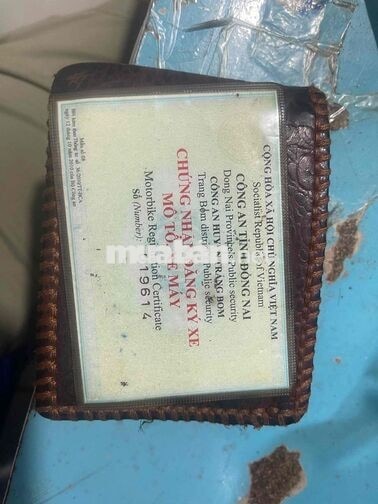 Mẫu số 08
CỘNG HÒA XÃ HỘI CHỦ NGHĨA VIỆT NAM
Socialist Republic of Vietnam
CÔNG AN TỈNH ĐỒNG NAI
Dong Nai Provinces Public security
CÔNG AN HUYỆN TRẢNG BOM
Trang Bom district Public security
CHỨNG NHẬN ĐĂNG KÝ XE
MÔ TÔ, XE MÁY
Motorbike Registration Certificate
Số (Number):
19614